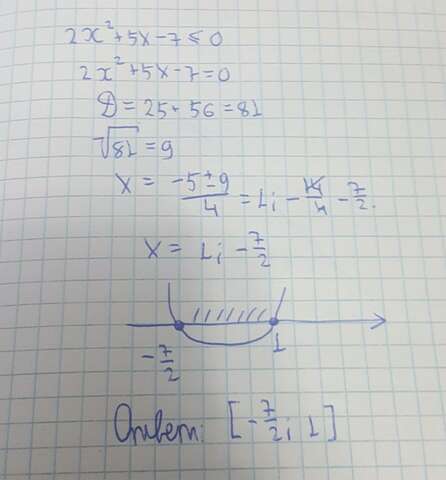 2x²+5x-7≤0
2x²+5x-7=0
D=25+56=81
√81=9
x = (-5±9)/4 = 1; -14/4 -7/2.
x = 1; -7/2
-7/2 1
Ответ: [-7/2; 1]